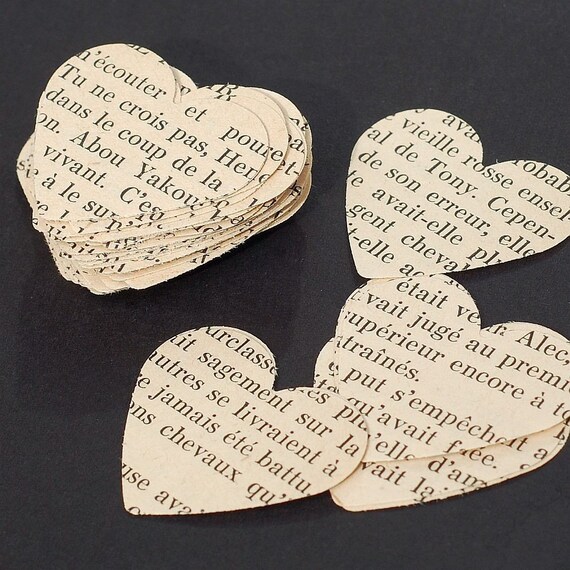 n'écouter et
Tu ne crois pas, Hen
dans le coup de la
on. Abou Yakou
vivant. C'e
à le su
poure
vieille rosse ensel
al de Tony. Cepen
de son erreur, elle
avait-elle pl
gent cheva
t-elle a
était ve
vait jugé au premi
supérieur encore à t
traînés.
put s'empêch
qu'avait fiée.
elle d'am
vait la
urclass
it sagement sur la
utres se livraient à
e jamais été battu
ns chevaux qu'
use avai